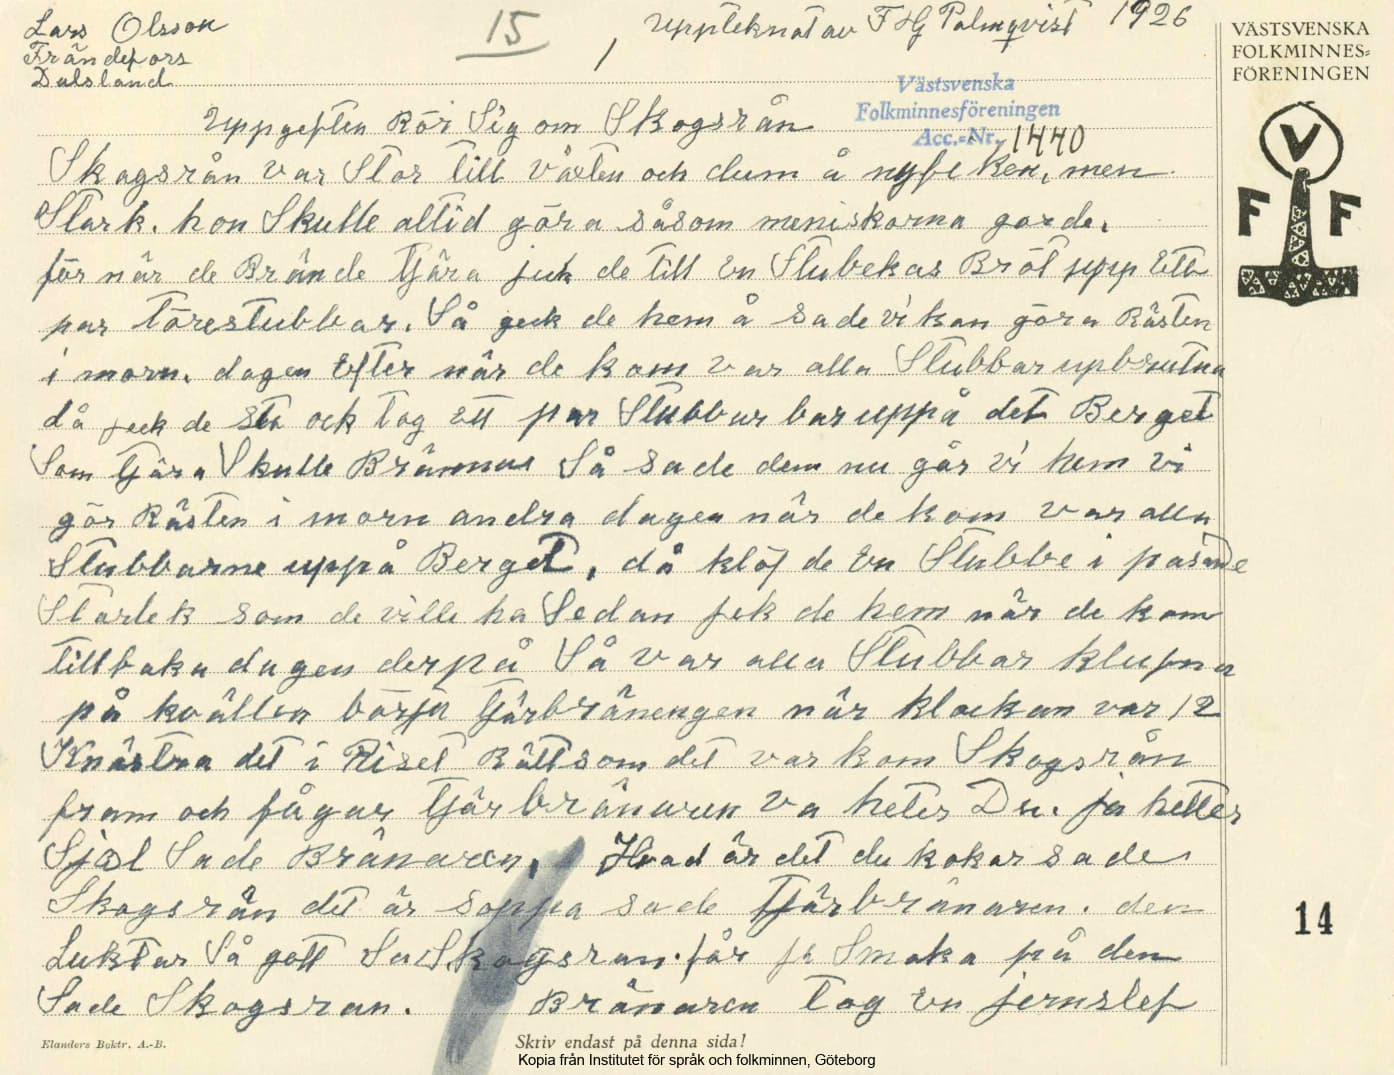 Lars Olsson
Frändefors
Dalsland
15
1
Uppteknat av F HG Palmqvist 1926
VÄSTSVENSKA
FOLKMINNES=
FÖRENINGEN
V
F F
Västsvenska
Folkminnesföreningen
Acc.-Nr. 1440
Uppgeften Rör Sig om Skogsrån
Skogsrån var Stor till växten och dum å nyfeken, men
Stark. hon Skulle altid göra såsom meniskorna gorde.
för när de Brände tjära jick de till en Stubekas Bröt upp Ett
par törestubbar. Så geck de hem å sade vi kan göra Rästen
i morn. dagen Efter når de kom var alla Stubbar upbrutna
då jeck de sta ock tog ett par Stubbar bar uppå det Berget
Som tjära Skulle Brännas Så sade dem nu går vi hem vi
gör Rästen i morn andra dagen når de kom var alla
Stubbarne uppå Berget, då klöf de En Stubbe i pasande
Storlek som de ville ha Sedan jek de hem når de kom
tillbaka dagen derpå Så var alla Stubbar klufna
på kvällen börja tjärbränengen når klockan var 12
Knastra det i Riset Rått som det var kom Skogsrån
fram och fågar tjärbrånaren va heter Du. ja hetter
Själ Sade Brånaren, Hvad är det du kokar sade
Skogsrån det är soppa sade tjärbränaren. den
Luktar Så gott Sa Skogsran. får ja Smaka på den
Sade Skogsran. Brånaren tog en jernslef
14
Elanders Boktr. A.-B.
Skriv endast på denna sida!
Kopia från Institutet för språk och folkminnen, Göteborg